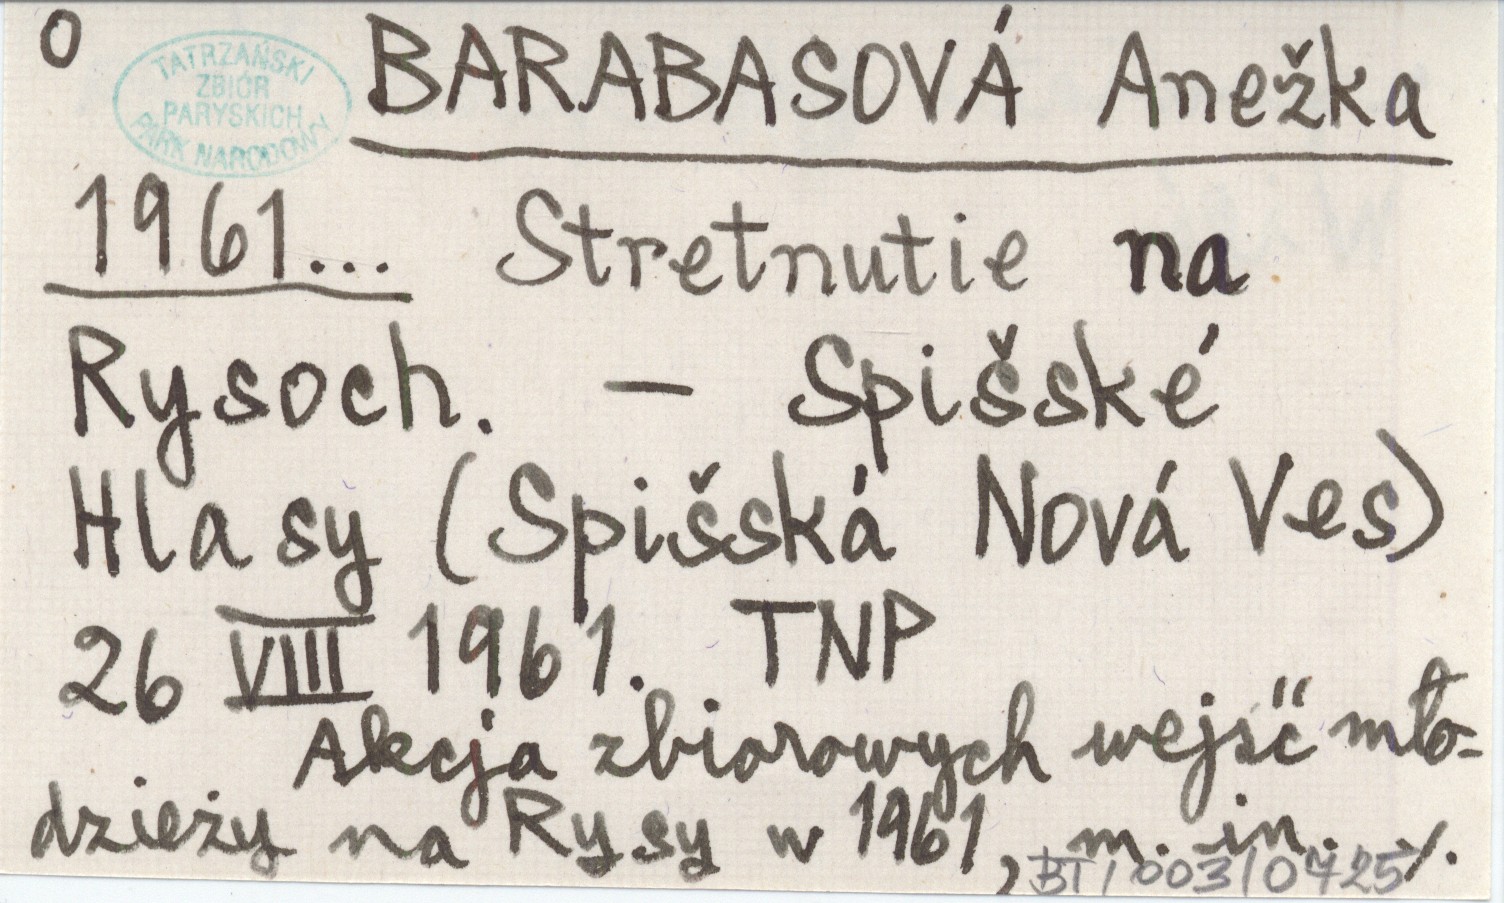 O
TATRZAŃSKI
ZBIÓR
PARYSKICH
PARK NARODOWY
BARABASOVÁ Anežka
1961... Stretnutie na
Rysoch. – Spišské
Hlasy (Spišská Nová Ves)
26 VIII 1961. TNP
Akcja zbiorowych wejść mło-
dzieży na Rysy w 1961, m. in. /.
BT/003/0725